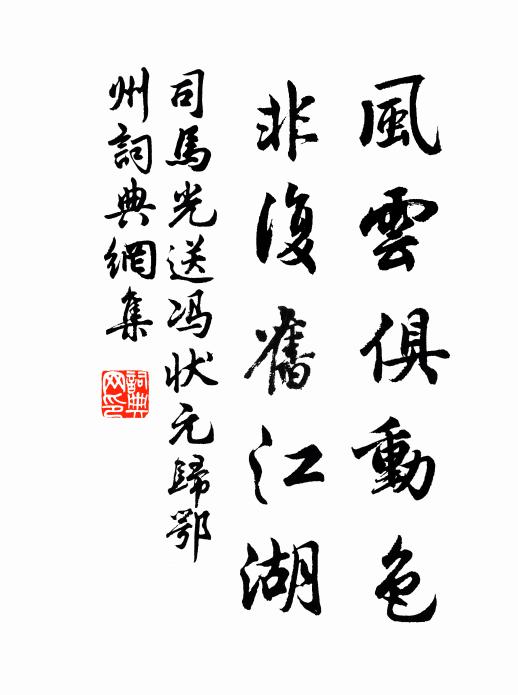 風雲俱動色
非復舊江湖
司馬光送冯状元歸鄂
州詞典網集
詞典
网印